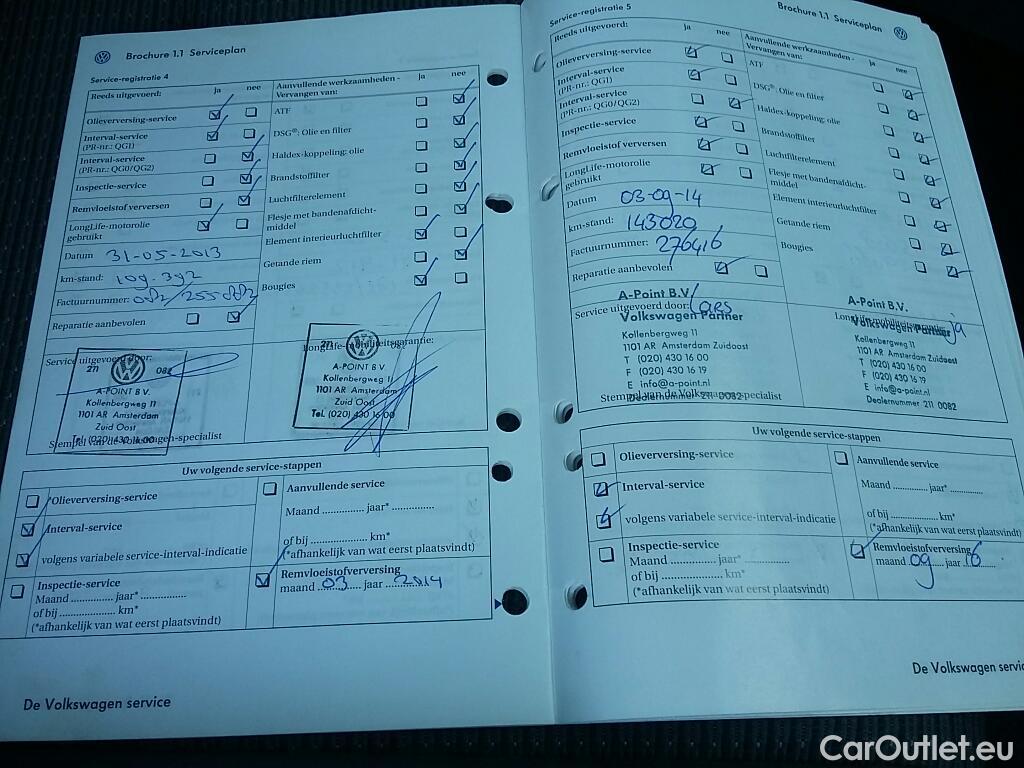 Brochure 1.1 Serviceplan
Service-registratie 4
Reeds uitgevoerd: ja nee
Olieverversing-service
Interval-service
(PR-nr.: QG1)
Interval-service
(PR-nr.: QG0/QG2)
Inspectie-service
Remvloeistof verversen
LongLife-motorolie
gebruikt
Datum 31-05-2013
km-stand: 109.392
Factuurnummer:
Reparatie aanbevolen
Aanvullende werkzaamheden -
Vervangen van: ja nee
ATF
DSG®: Olie en filter
Haldex-koppeling: olie
Brandstoffilter
Luchtfilterelement
Flesje met bandenafdicht-
middel
Element interieurluchtfilter
Getande riem
Bougies
Service uitgevoerd door:
211 082
A-POINT B.V.
Kollenbergweg 11
1101 AR Amsterdam
Zuid Oost
Tel. (020) 430 16 00
Stempel van de Volkswagen-specialist
LongLife-mobiliteitsgarantie:
211 082
A-POINT B.V.
Kollenbergweg 11
1101 AR Amsterdam
Zuid Oost
Tel. (020) 430 16 00
Uw volgende service-stappen
Olieverversing-service
Interval-service
volgens variabele service-interval-indicatie
Inspectie-service
Maand .............. jaar* ..............
of bij .................. km*
(*afhankelijk van wat eerst plaatsvindt)
Aanvullende service
Maand .............. jaar* ..............
of bij .................. km*
(*afhankelijk van wat eerst plaatsvindt)
Remvloeistofverversing
maand 03 jaar 2014
De Volkswagen service
Brochure 1.1 Serviceplan
Service-registratie 5
Reeds uitgevoerd: ja nee
Olieverversing-service
Interval-service
(PR-nr.: QG1)
Interval-service
(PR-nr.: QG0/QG2)
Inspectie-service
Remvloeistof verversen
LongLife-motorolie
gebruikt
Datum 03-09-14
km-stand: 143020
Factuurnummer: 276416
Reparatie aanbevolen
Aanvullende werkzaamheden -
Vervangen van: ja nee
ATF
DSG®: Olie en filter
Haldex-koppeling: olie
Brandstoffilter
Luchtfilterelement
Flesje met bandenafdicht-
middel
Element interieurluchtfilter
Getande riem
Bougies
A-Point B.V.
Service uitgevoerd door:
Volkswagen Partner
Kollenbergweg 11
1101 AR Amsterdam Zuidoost
T (020) 430 16 00
F (020) 430 16 19
E info@a-point.nl
Dealernummer 211 0082
Stempel van de Volkswagen-specialist
A-Point B.V.
LongLife-mobiliteitsgarantie: ja
Volkswagen Partner
Kollenbergweg 11
1101 AR Amsterdam Zuidoost
T (020) 430 16 00
F (020) 430 16 19
E info@a-point.nl
Dealernummer 211 0082
Uw volgende service-stappen
Olieverversing-service
Interval-service
volgens variabele service-interval-indicatie
Inspectie-service
Maand .............. jaar* ..............
of bij .................. km*
(*afhankelijk van wat eerst plaatsvindt)
Aanvullende service
Maand .............. jaar* ..............
of bij .................. km*
(*afhankelijk van wat eerst plaatsvindt)
Remvloeistofverversing
maand 09 jaar 16
De Volkswagen servic
CarOutlet.eu